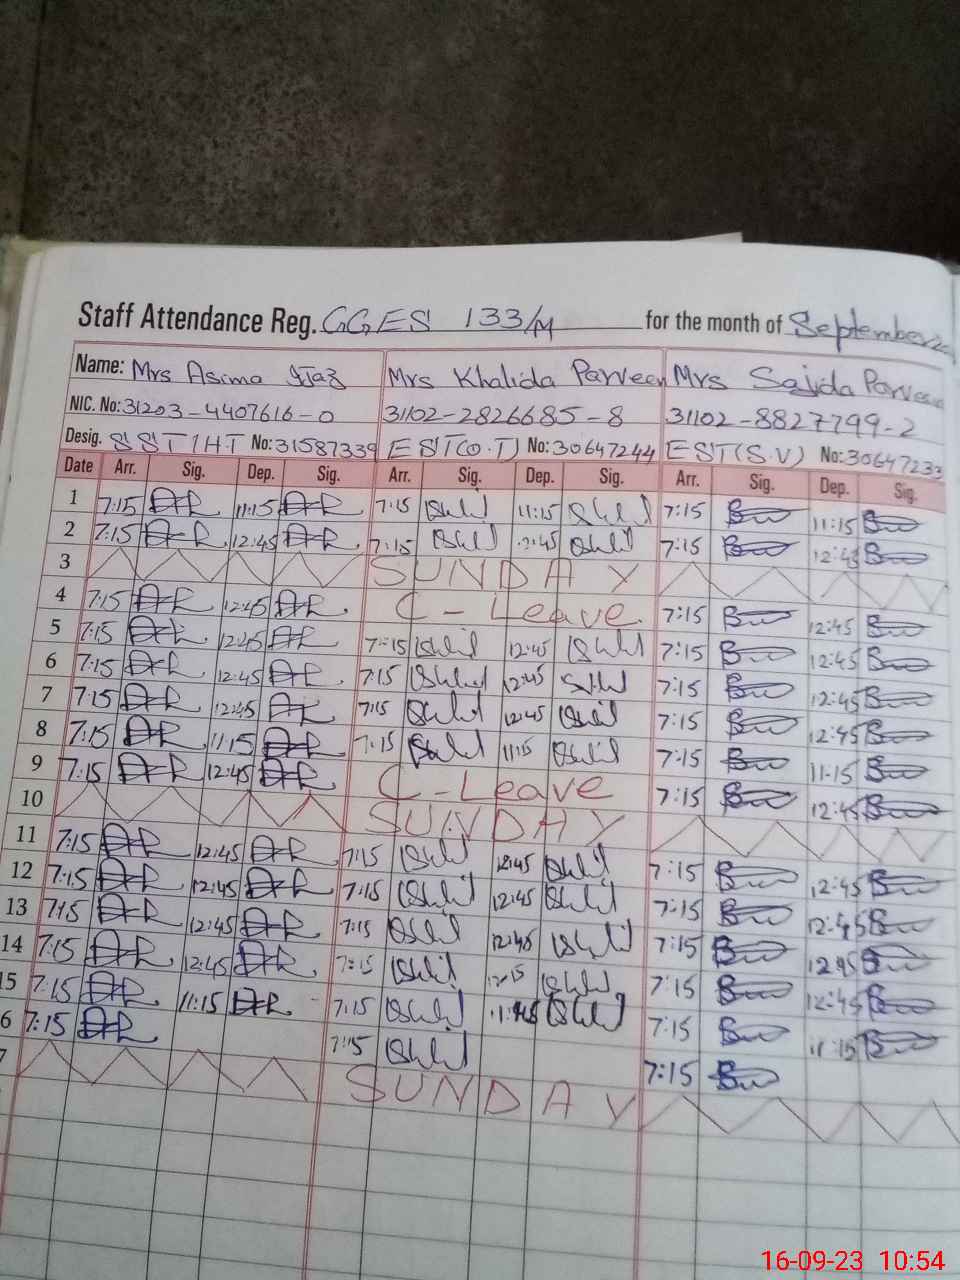 Staff Attendance Reg. GGES 133/M for the month of September
Name: Mrs Asima Ijaz Mrs Khalida Parveen Mrs Sajida Parveen
NIC. No: 31203-4407616-0 31102-2826685-8 31102-8827799-2
Desig. SST/HT No: 31587339 EST(O.T) No: 30647244 EST(S.V) No: 30647233
Date Arr. Sig. Dep. Sig. Arr. Sig. Dep. Sig. Arr. Sig. Dep. Sig.
1 7:15 11:15 7:15 11:15 7:15 11:15
2 7:15 12:45 7:15 12:45 7:15 12:45
3 SUNDAY
4 7:15 12:45 C-Leave 7:15 12:45
5 7:15 12:45 7:15 12:45 7:15 12:45
6 7:15 12:45 7:15 12:45 7:15 12:45
7 7:15 12:45 7:15 12:45 7:15 12:45
8 7:15 11:15 7:15 11:15 7:15 11:15
9 7:15 12:45 C-Leave 7:15 12:45
10 SUNDAY
11 7:15 12:45 7:15 12:45 7:15 12:45
12 7:15 12:45 7:15 12:45 7:15 12:45
13 7:15 12:45 7:15 12:45 7:15 12:45
14 7:15 12:45 7:15 7:15 12:45
15 7:15 11:15 7:15 7:15 11:15
6 7:15 7:15 7:15
7 SUNDAY
16-09-23 10:54